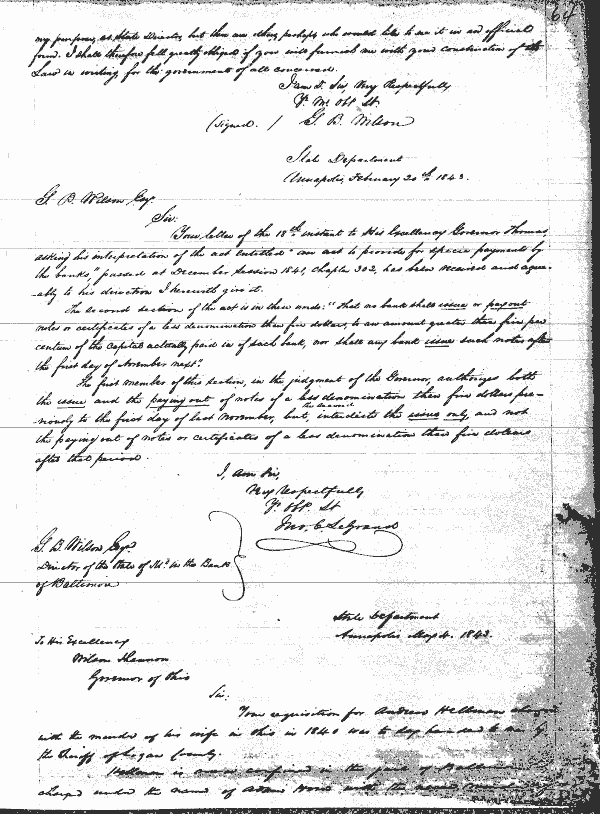 my purposes, as State Director, but there are others, perhaps, who would like to see it in an official
form. I shall therefore feel greatly obliged if you will furnish me with your construction of the
Law in writing for the government of all concerned.
I am D. Sir, Very Respectfully
Y. Mo. Obt. St.
(Signed. ) G. B. Wilson
State Department
Annapolis, February 20th 1843.
G. B. Wilson Esq.
Sir.
Your letter of the 18th instant to His Excellency Governor Thomas
asking his interpretation of the act entitled "an act to provide for specie payments by
the banks," passed at December Session 1841, chapter 302, has been received and agree-
ably to his direction I herewith give it.
The second section of the act is in these words: "That no bank shall issue or pay out
notes or certificates of a less denomination than five dollars, to an amount greater than five per
centum of the capital actually paid in of such bank, nor shall any bank issue such notes after
the first day of November next".
The first member of this section, in the judgment of the Governor, authorizes both
the issue and the paying out of notes of a less denomination than five dollars pre-
viously to the first day of last November, but, interdicts the issue only, and not
the paying out of notes or certificates of a less denomination than five dollars
after that period.
I, am Sir,
Very Respectfully
Y. Obt. St
Jno. C. LeGrand
G. B. Wilson Esq.
Director of the State of Md. in the Bank
of Baltimore
State Department
Annapolis May 4. 1843.
To His Excellency
Wilson Shannon
Governor of Ohio
Sir.
Your requisition for Andrew Hellman charged
with the murder of his wife in Ohio in 1840 was to day handed to me by
the Sheriff of Logan County.
Hellman is now confined in the jail of Baltimore
charged under the name of Adam Horn with the